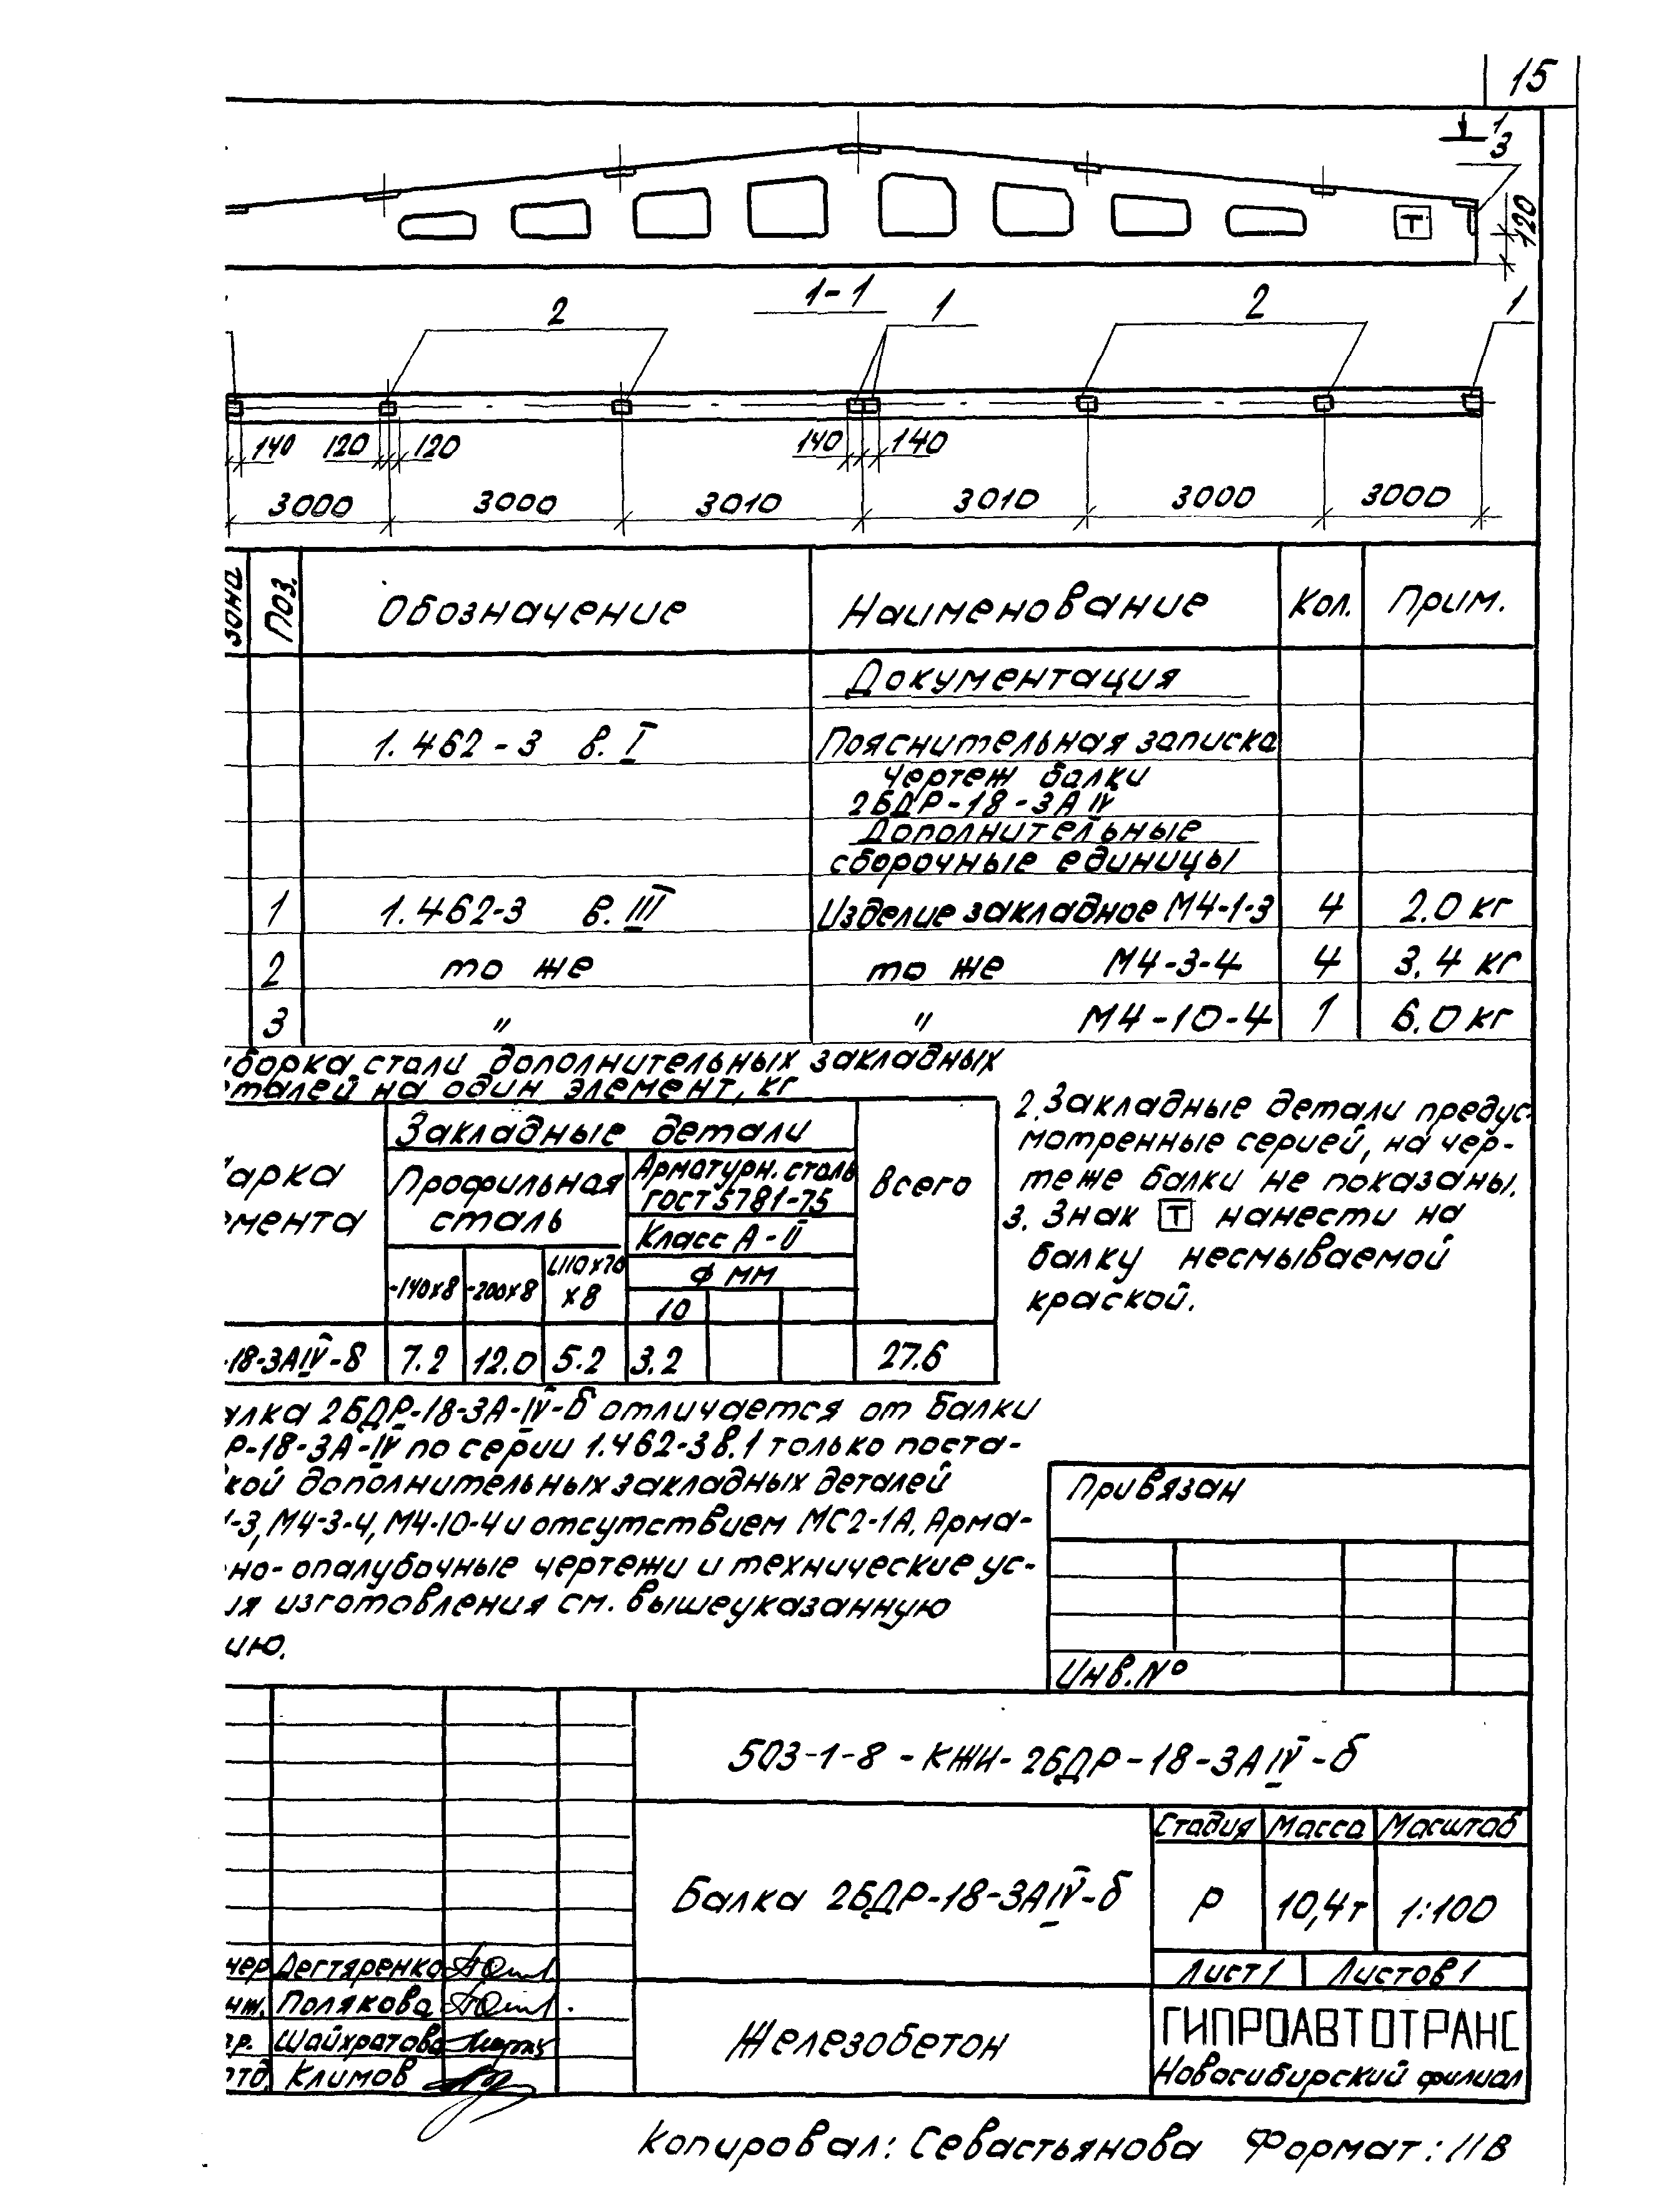 15
1
3
120
Т
1-1
2 1 2 1
140 120 120 140 140
3000 3000 3010 3010 3000 3000
зона Поз. Обозначение Наименование Кол. Прим.
Документация
1.462-3 в. I Пояснительная записка
чертеж балки
2БДР-18-3АIV
Дополнительные
сборочные единицы
1 1.462-3 в. III Изделие закладное М4-1-3 4 2.0 кг
2 то же то же М4-3-4 4 3.4 кг
3 " " М4-10-4 1 6.0 кг
борка стали дополнительных закладных
талей на один элемент, кг
Закладные детали
арка
мента
Профильная
сталь
Арматурн. сталь
ГОСТ 5781-75
Класс А-II
Ф мм
Всего
-140х8 -200х8 L110х70
х8
10
-18-3АIV-8 7.2 12.0 5.2 3.2 27.6
2. Закладные детали предус-
мотренные серией, на чер-
теже балки не показаны.
3. Знак Т нанести на
балку несмываемой
краской.
алка 2БДР-18-3А-IV-б отличается от балки
Р-18-3А-IV по серии 1.462-3 в.1 только поста-
кой дополнительных закладных деталей
1-3, М4-3-4, М4-10-4 и отсутствием МС2-1А. Арма-
но-опалубочные чертежи и технические ус-
ия изготовления см. вышеуказанную
ию.
Привязан
Инв.№
503-1-8-КЖИ-2БДР-18-3АIV-б
Балка 2БДР-18-3АIV-б
Стадия Масса Масштаб
Р 10,4т 1:100
Лист 1 Листов 1
Железобетон
ГИПРОАВТОТРАНС
Новосибирский филиал
чер Дегтяренко
нж. Полякова
гр. Шайхратова
отд. Климов
Копировал: Севастьянова Формат: 11В